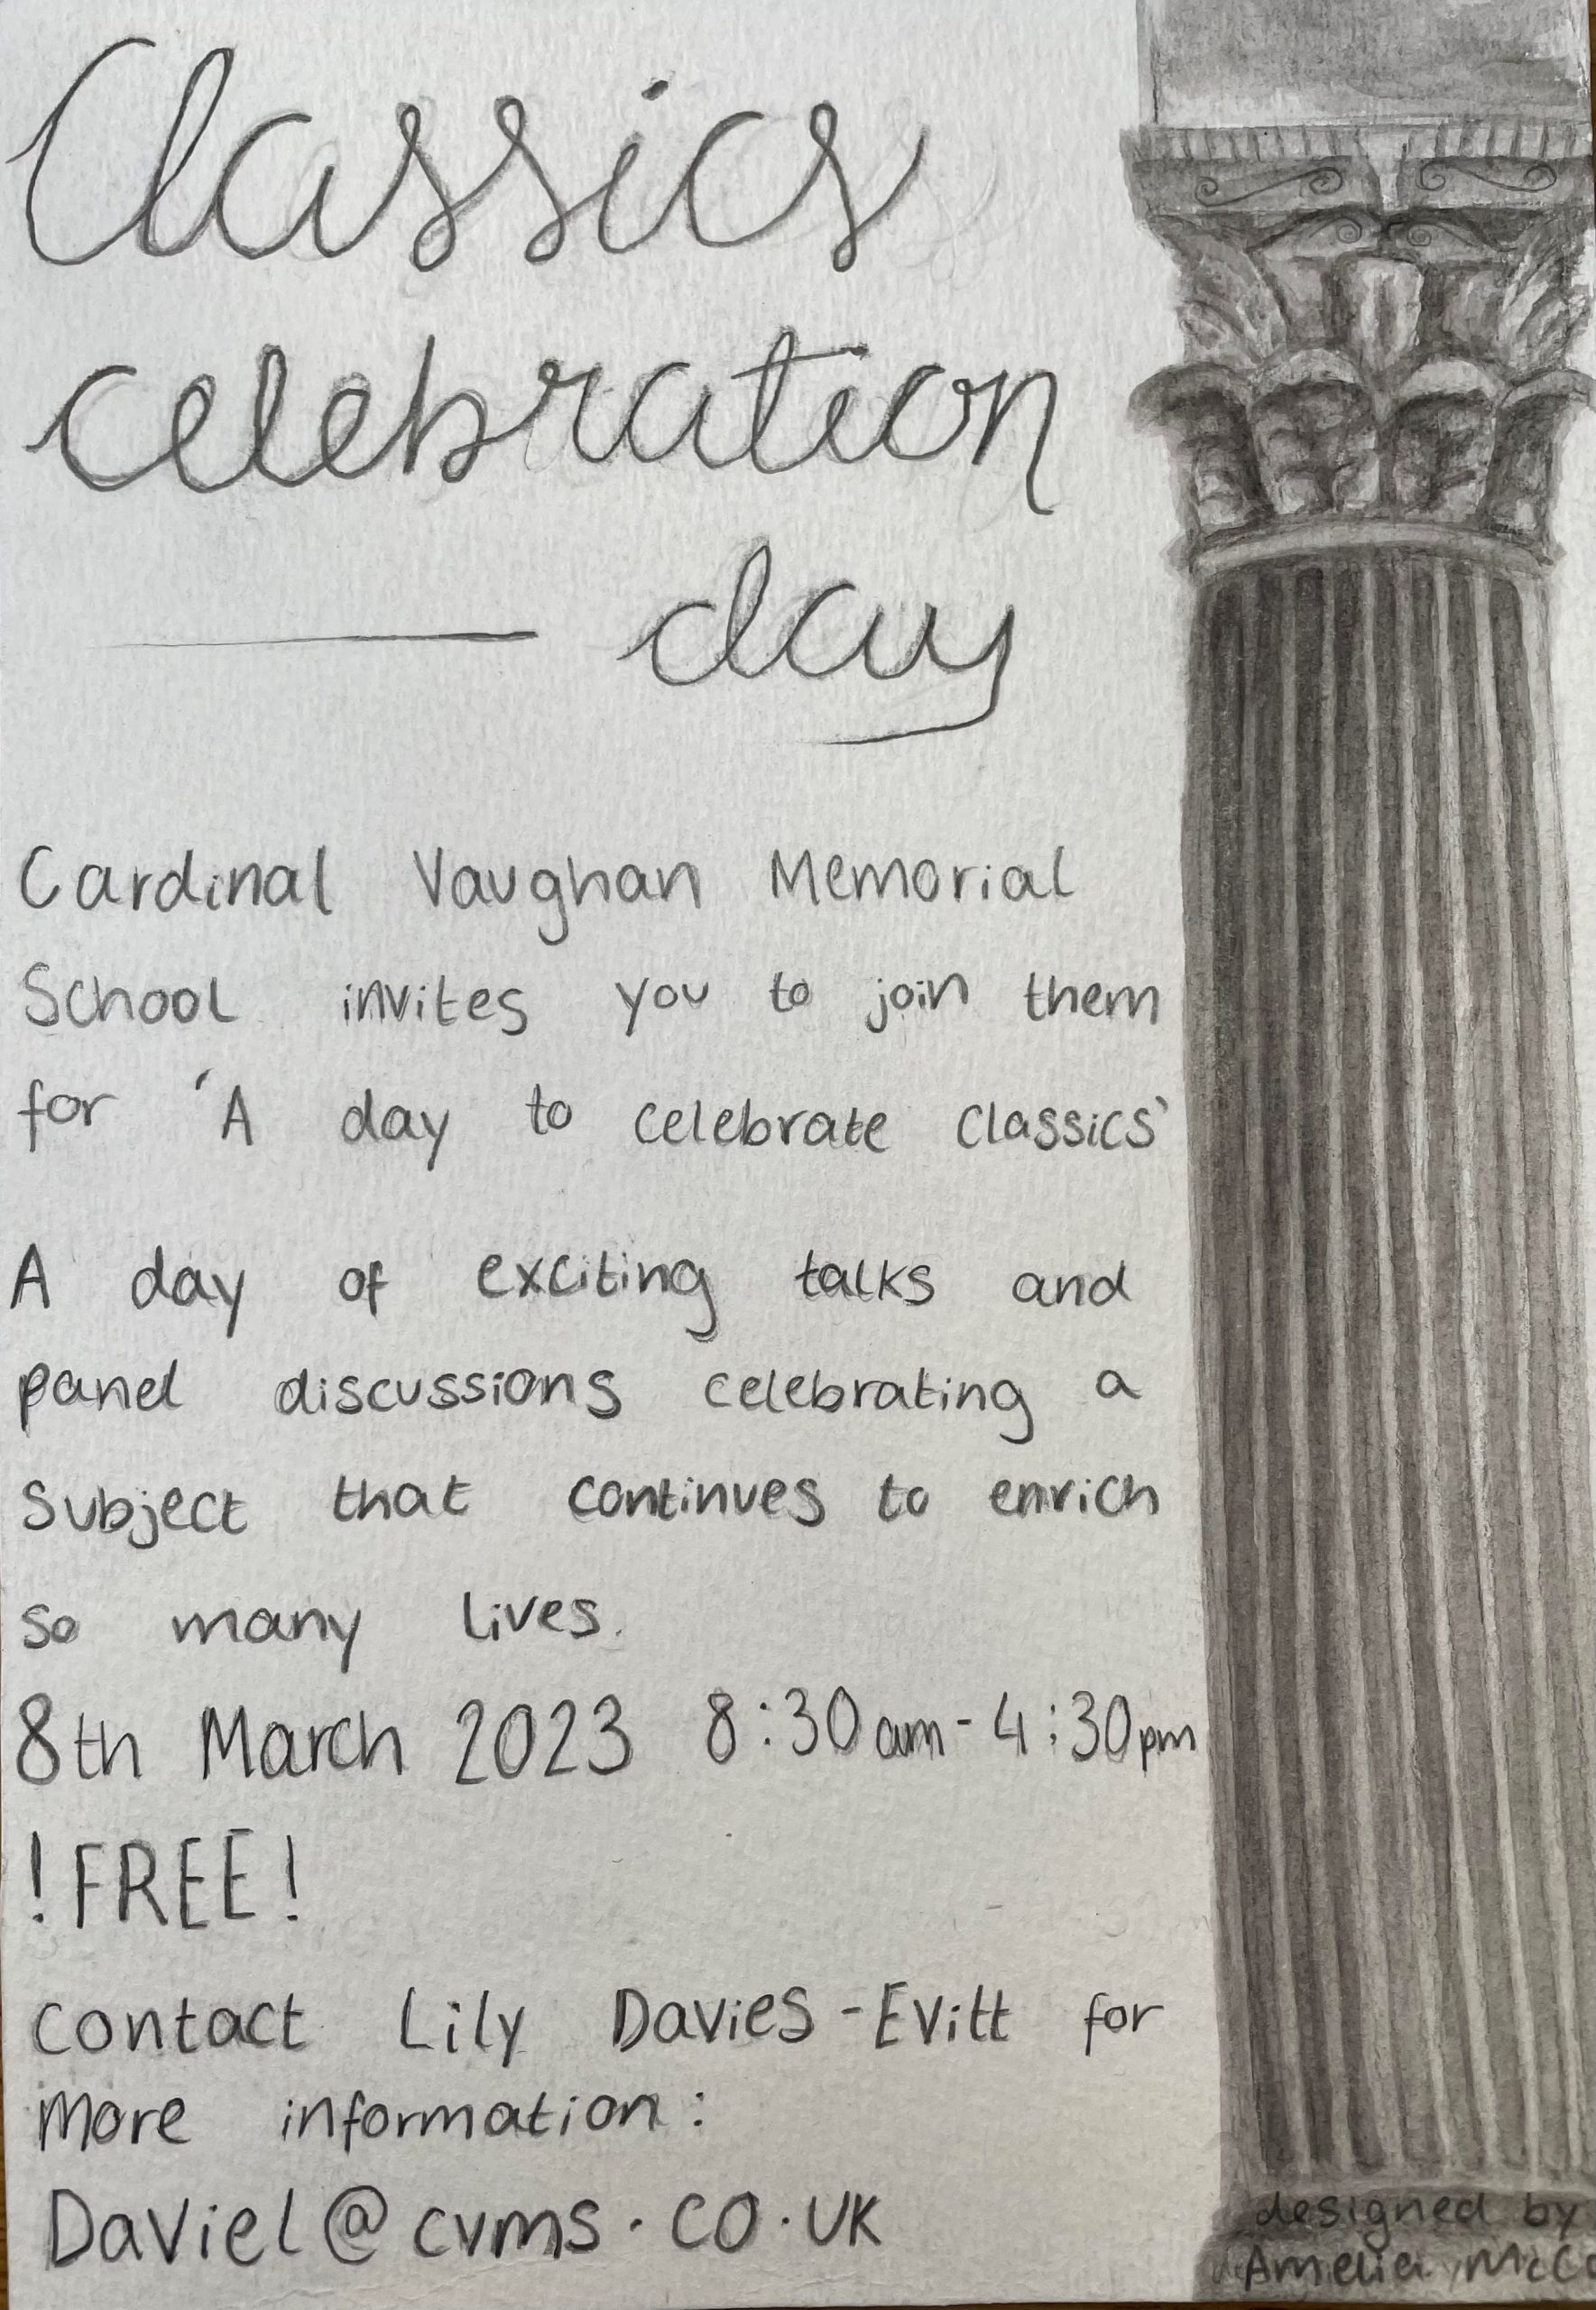 Classics
celebration
day
Cardinal Vaughan Memorial
School invites you to join them
for 'A day to celebrate classics'
A day of exciting talks and
panel discussions celebrating a
subject that continues to enrich
so many lives.
8th March 2023 8:30am-4:30pm
!FREE!
Contact Lily Davies-Evitt for
more information:
Daviel@cvms.co.uk
designed by
Amelia